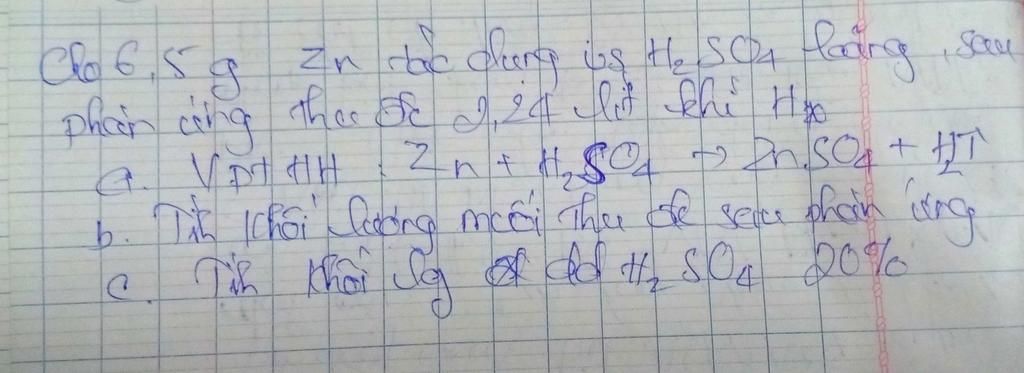 Cho 6,5 g Zn tác dụng vs H₂SO₄ loãng, sau
phản ứng thu đc 2,24 lít khí H₂
a. VPTHH: Zn + H₂SO₄ → ZnSO₄ + H₂↑
b. Tíh khối lượng muối thu đc sau phản ứng
c. Tíh khối lg dd H₂SO₄ 20%